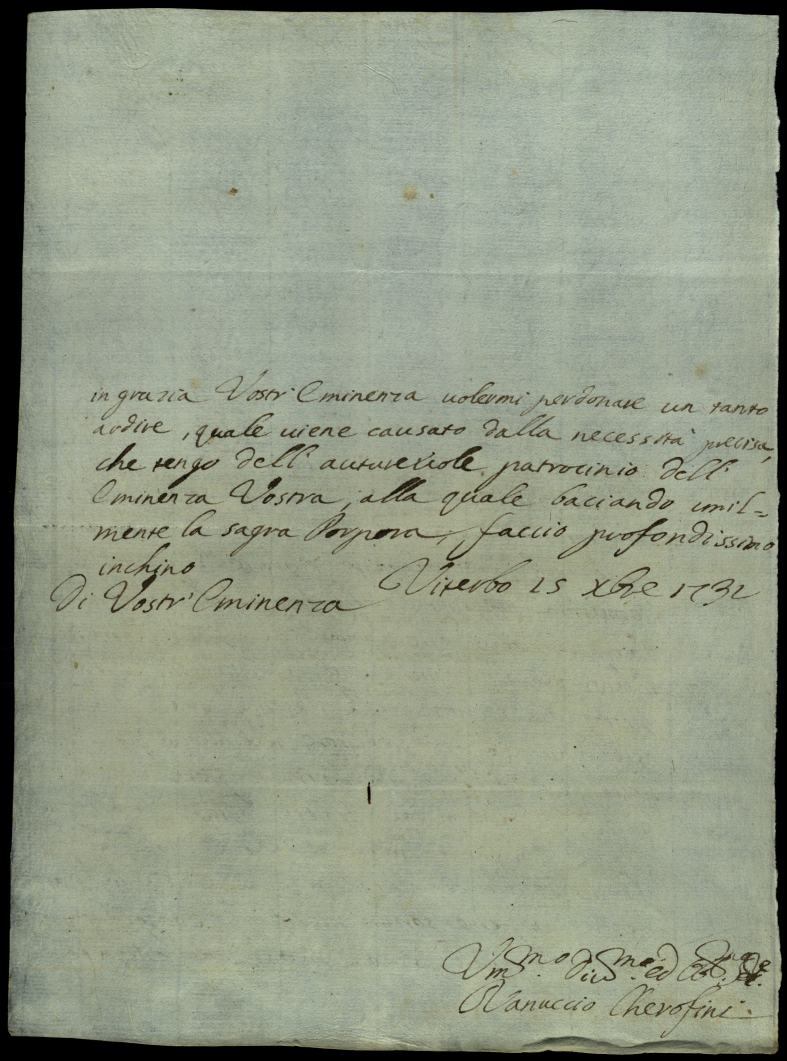 in grazia Vostr' Eminenza uolermi perdonare un tanto
ardire, quale uiene causato dalla necessità precisa,
che tengo dell' autoreuole patrocinio dell'
Eminenza Vostra, alla quale baciando umil=
mente la sagra Porpora, faccio profondissimo
inchino
Di Vostr' Eminenza Viterbo 15 Xbre 1732
Um.mo div.mo ed
Ranuccio Cherofini